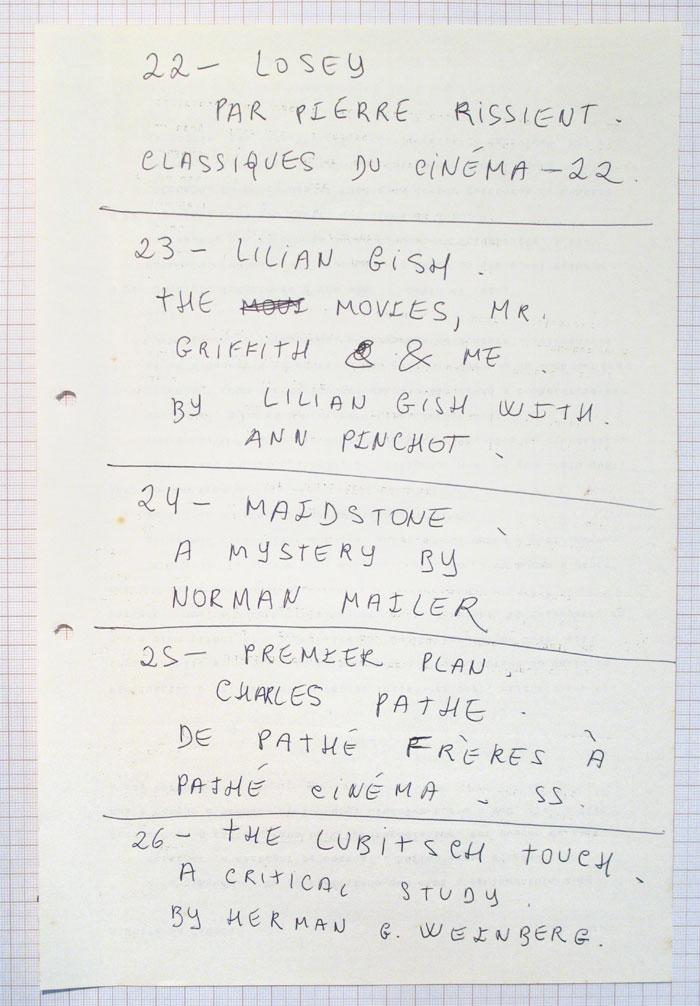 22 - LOSEY
PAR PIERRE RISSIENT.
CLASSIQUES DU CINÉMA - 22.
23 - LILIAN GISH.
THE MOVIES, MR.
GRIFFITH & ME
BY LILIAN GISH WITH.
ANN PINCHOT.
24 - MAIDSTONE
A MYSTERY BY
NORMAN MAILER
25 - PREMIER PLAN.
CHARLES PATHE.
DE PATHÉ FRÈRES À
PATHÉ CINÉMA. 55.
26 - THE LUBITSCH TOUCH.
A CRITICAL STUDY.
BY HERMAN G. WEINBERG.